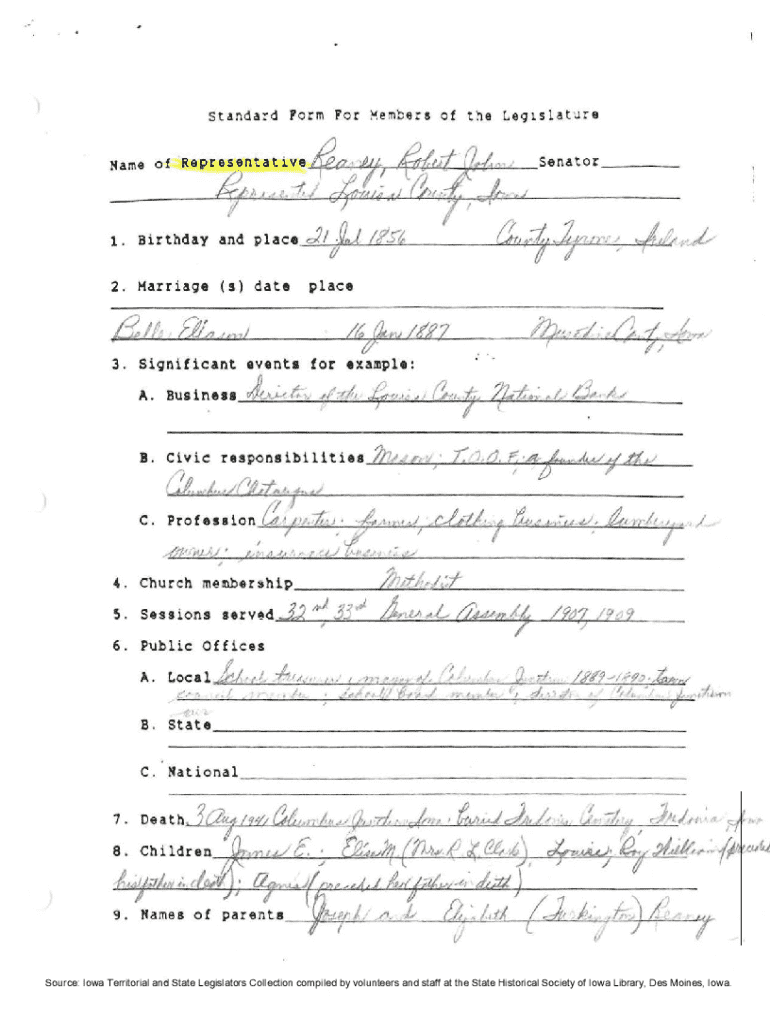 Standard Form For Members of the Legislature
Name of Representative Reaney, Robert John Senator
Represented Louisa County, Iowa
1. Birthday and place 21 Jul 1856 County Tyrone, Ireland
2. Marriage (s) date place
Belle Eliason 16 Jan 1887 County, Iowa
3. Significant events for example:
A. Business Director of the Louisa County National Bank
B. Civic responsibilities Mason; I.O.O.F; a founder of the
Columbus
C. Profession Carpenter; farmer; clothing business; lumberyard
owner; insurance business
4. Church membership Methodist
5. Sessions served 32nd, 33rd General Assembly 1907, 1909
6. Public Offices
A. Local School treasurer; mayor of Columbus Junction 1889-1892; town
council member; school board member; director of Columbus Junction
B. State
C. National
7. Death 3 Aug 1941 Columbus Junction, Iowa; buried Fredonia Cemetery, Fredonia, Iowa
8. Children James E.; (Mrs. R. L. Clark); Louise; Roy William (preceded
his father in death); Agnes (preceded her father in death)
9. Names of parents Joseph and Elizabeth (Turkington) Reaney
Source: Iowa Territorial and State Legislators Collection compiled by volunteers and staff at the State Historical Society of Iowa Library, Des Moines, Iowa.